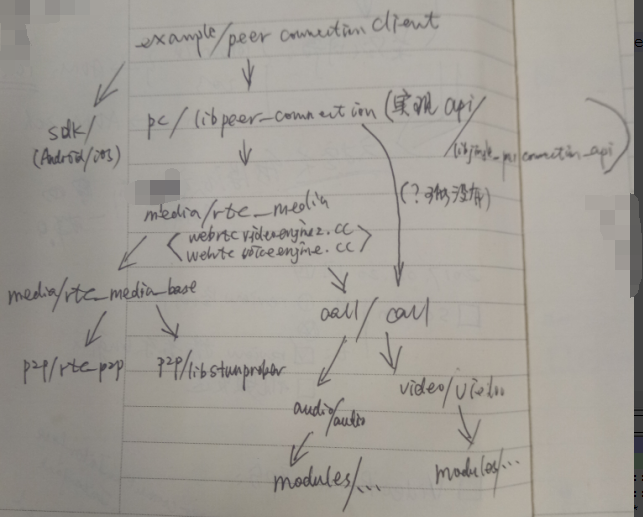 example/peer connection client
sdk/
(Android/iOS)
pc/libpeer-connection (实现 api/
libjingle_peerconnection_api)
media/rtc_media
<webrtcvideoengine2.cc
webrtcvoiceengine.cc>
media/rtc_media_base
call/call
p2p/rtc_p2p
p2p/libstunprober
video/video
audio/audio
modules/...
modules/...